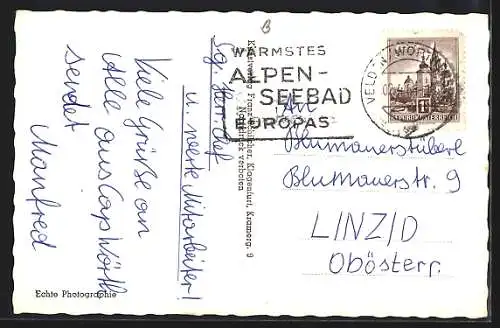 B
WÄRMSTES
ALPEN-
SEEBAD
EUROPAS
VELDEN
REPUBLIK ÖSTERREICH
An
Blumauerstüberl
Blumauerstr. 9
LINZ/D
Obösterr.
Sg. Herr Chef
u. werte Mitarbeiter!
Viele Grüße an
Alle aus Cap Wörth
sendet
Manfred
Kunstverlag Franz Schilcher, Klagenfurt, Kramerg. 9
Nachdruck verboten
Echte Photographie